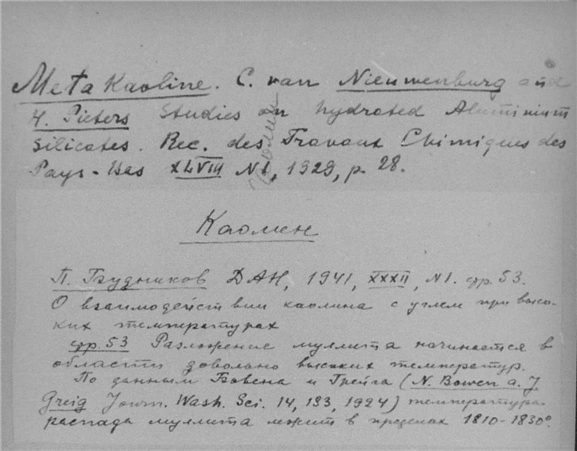 Meta Kaoline. C. van Nieuwenburg and
H. Pieters Studies on hydrated Aluminium
silicates. Rec. des Travaux Chimiques des
Pays-Bas XLVIII N1, 1929, p. 28.
Каолин
Каолин
П. Будников ДАН, 1941, XXXII, N1. стр. 53.
О взаимодействии каолина с углем при высо-
ких температурах
стр. 53 Разложение муллита начинается в
области довольно высоких температур.
По данным Бовена и Грейга (N. Bowen a. J.
Greig Journ. Wash. Sci. 14, 183, 1924) температура
распада муллита лежит в пределах 1810-1830°.